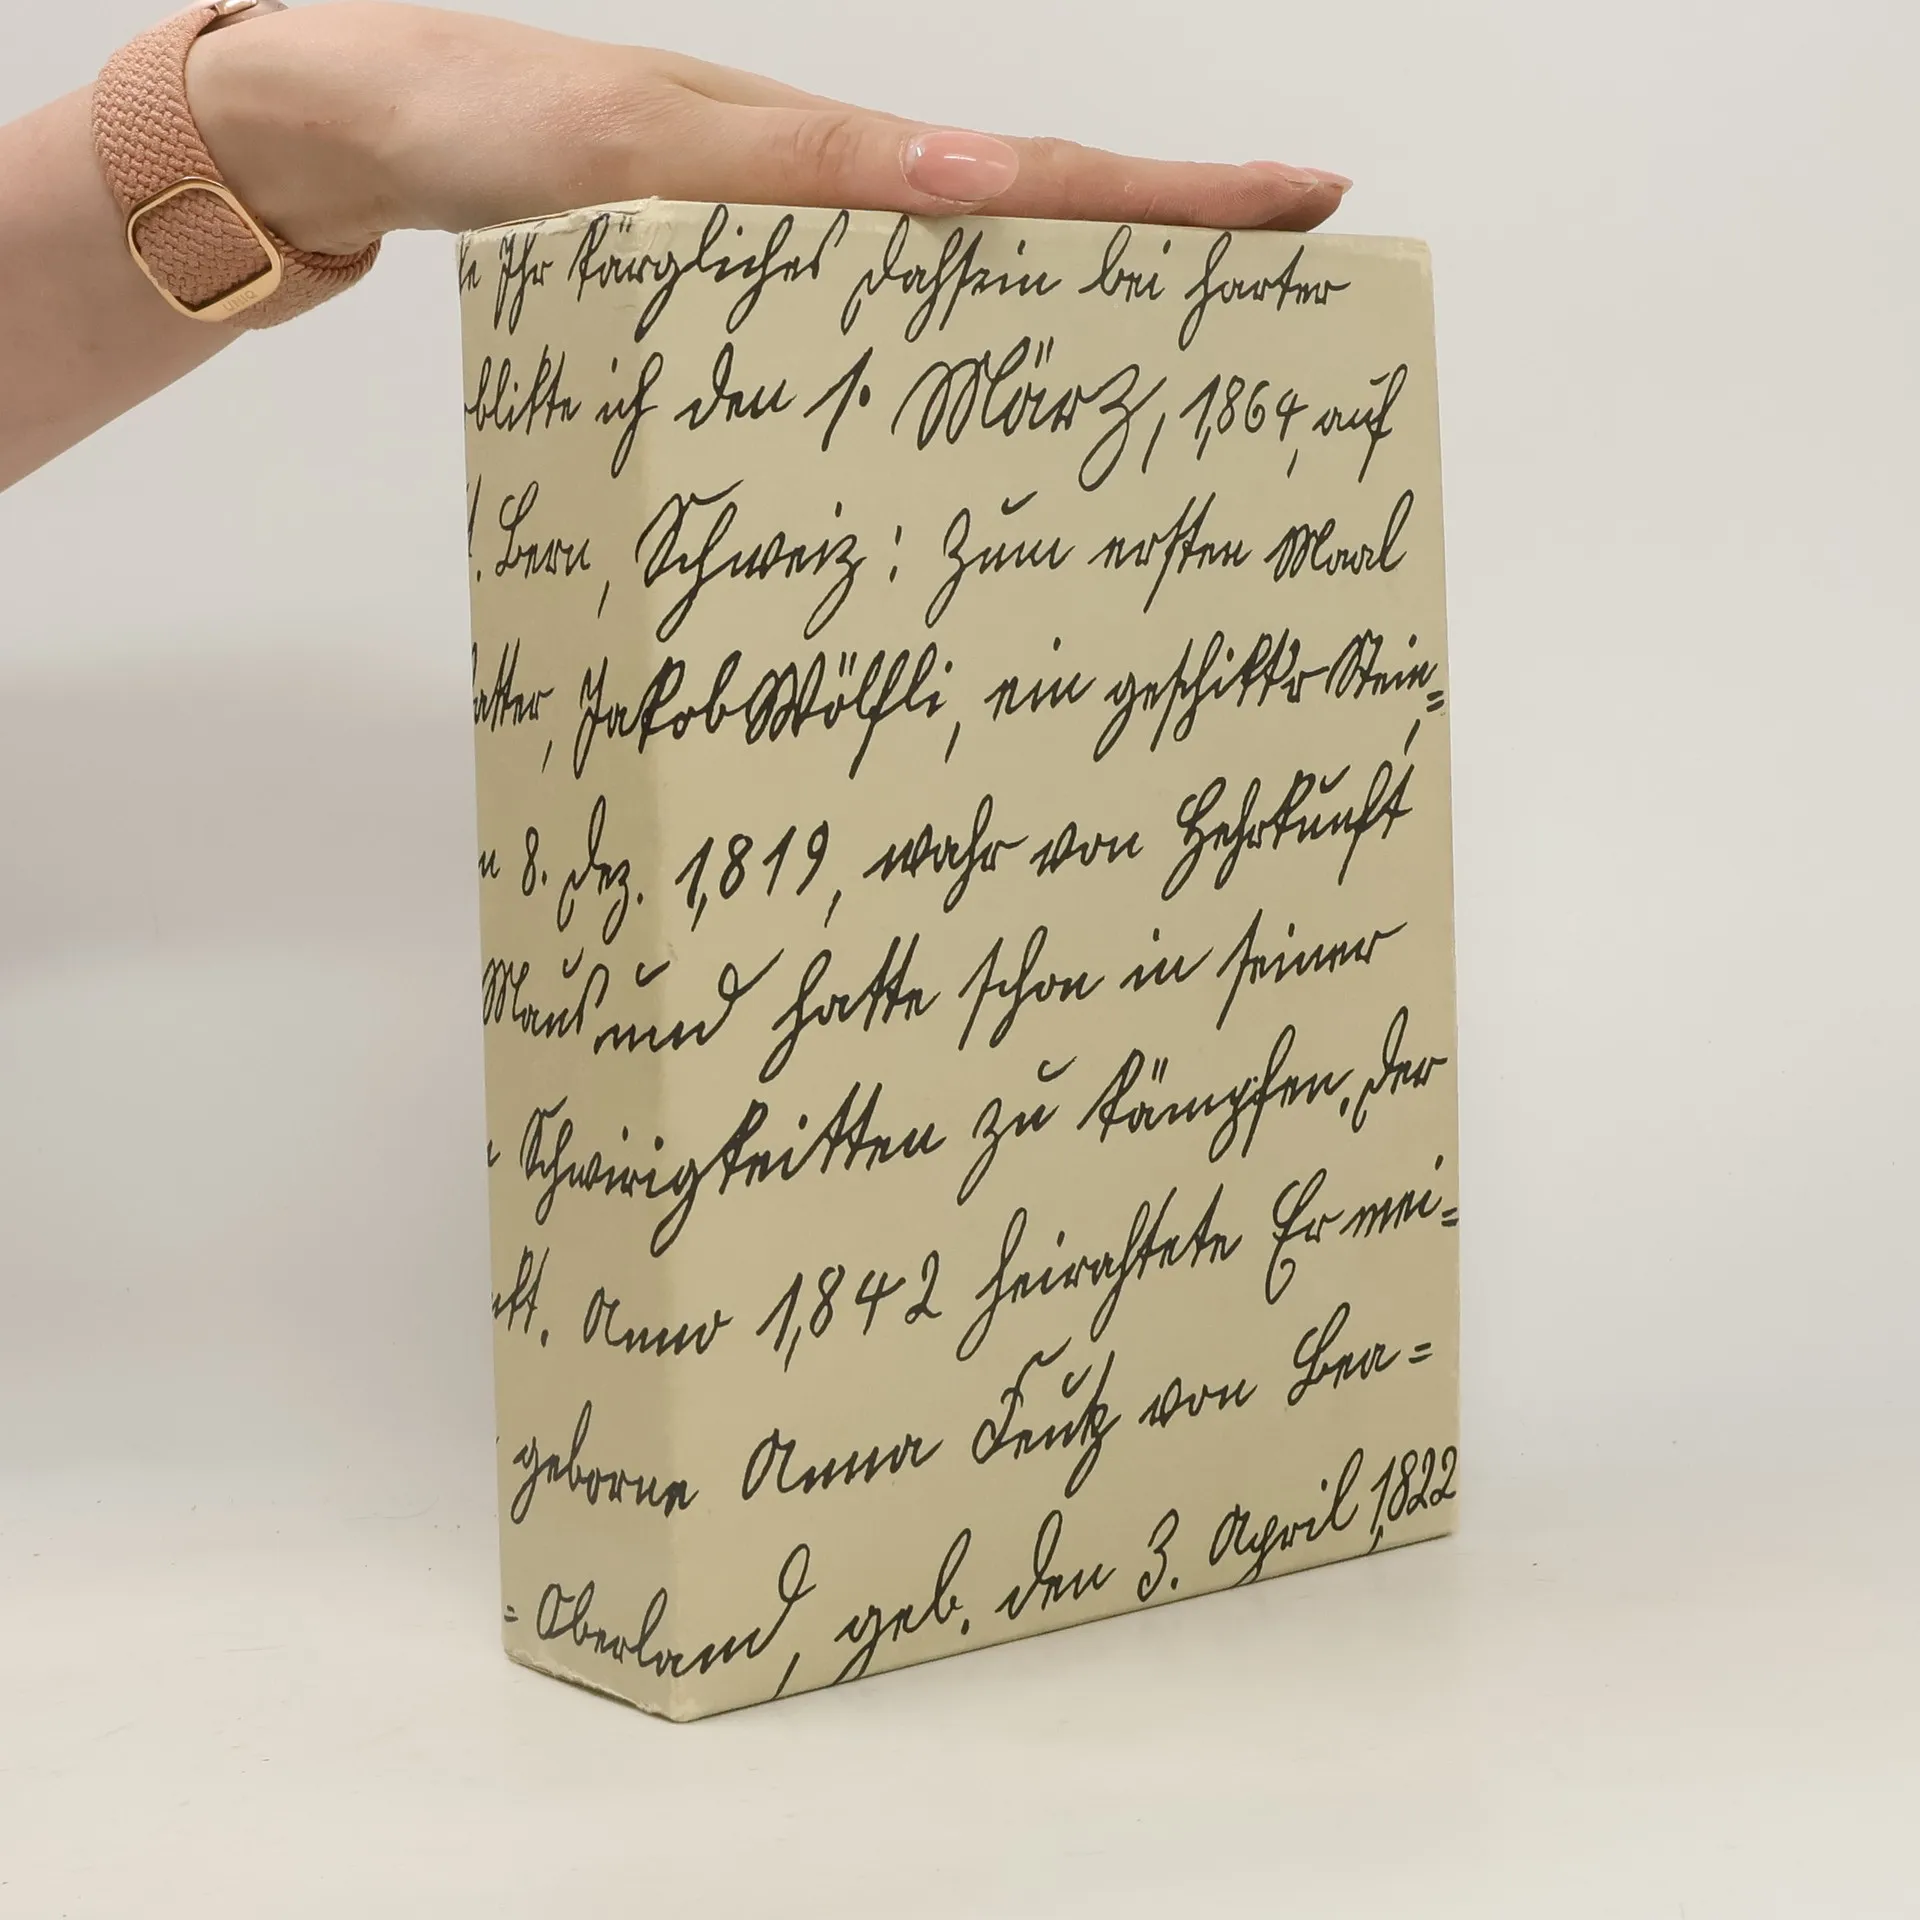 Ihr kärgliches Dahsein bei harter
blikte ich den 1. März, 1,864, auf
. Bern, Schweiz: Zum ersten Maal
atter, Jakob Wölfli, ein geschiktr Stein=,
n 8. Dez. 1,819, wahr von Hehrkunft
Maus und hatte schon in seiner
Schwirigkeitten zu kämpfen. Der
nft. Anno 1,842 heirahtete Er mei=
geborne Anna Feutz von Bea=
= Oberland, geb. den 3. April 1,822